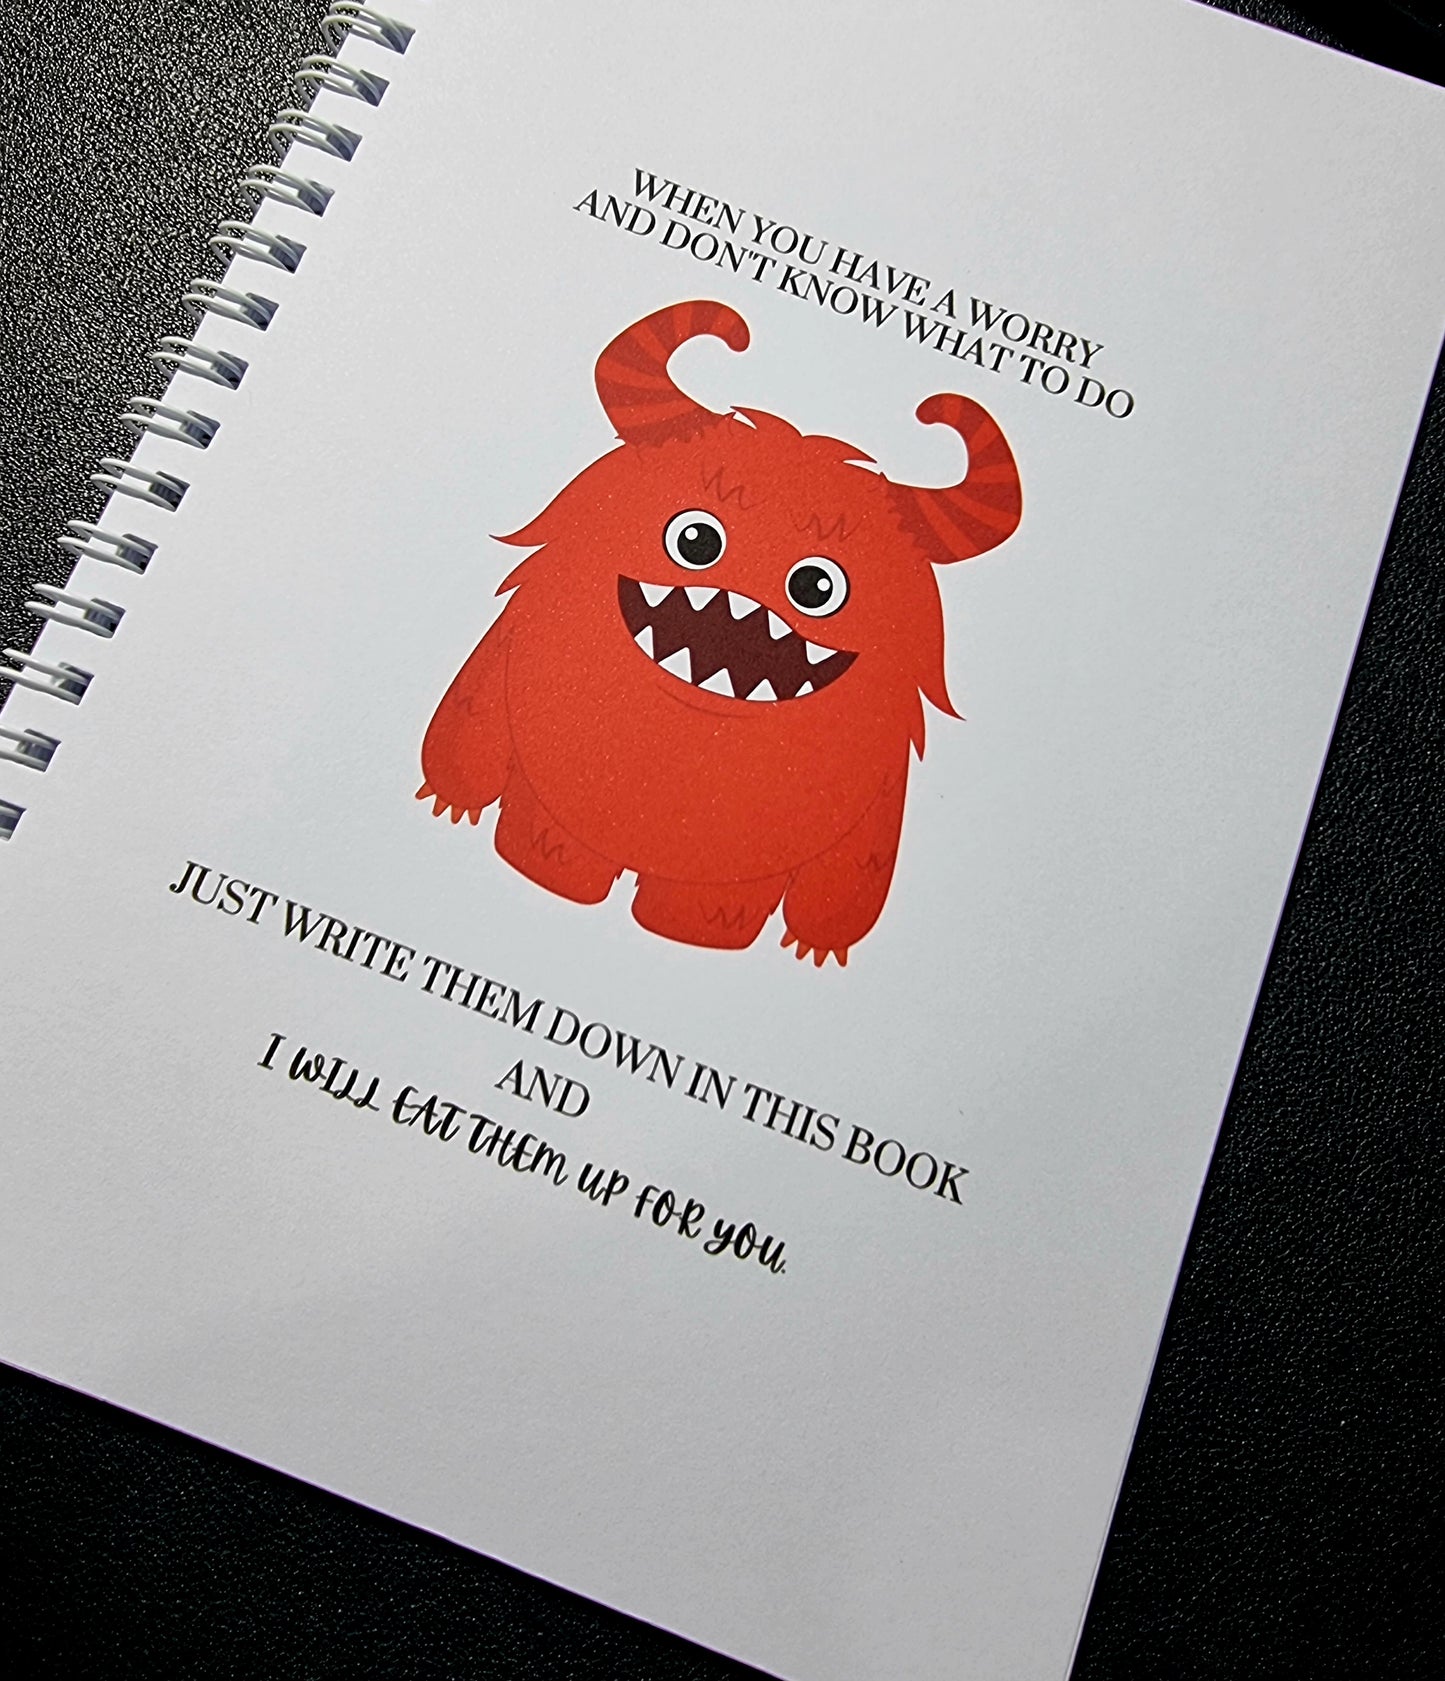 WHEN YOU HAVE A WORRY
AND DON'T KNOW WHAT TO DO
JUST WRITE THEM DOWN IN THIS BOOK
AND
I WILL EAT THEM UP FOR YOU.